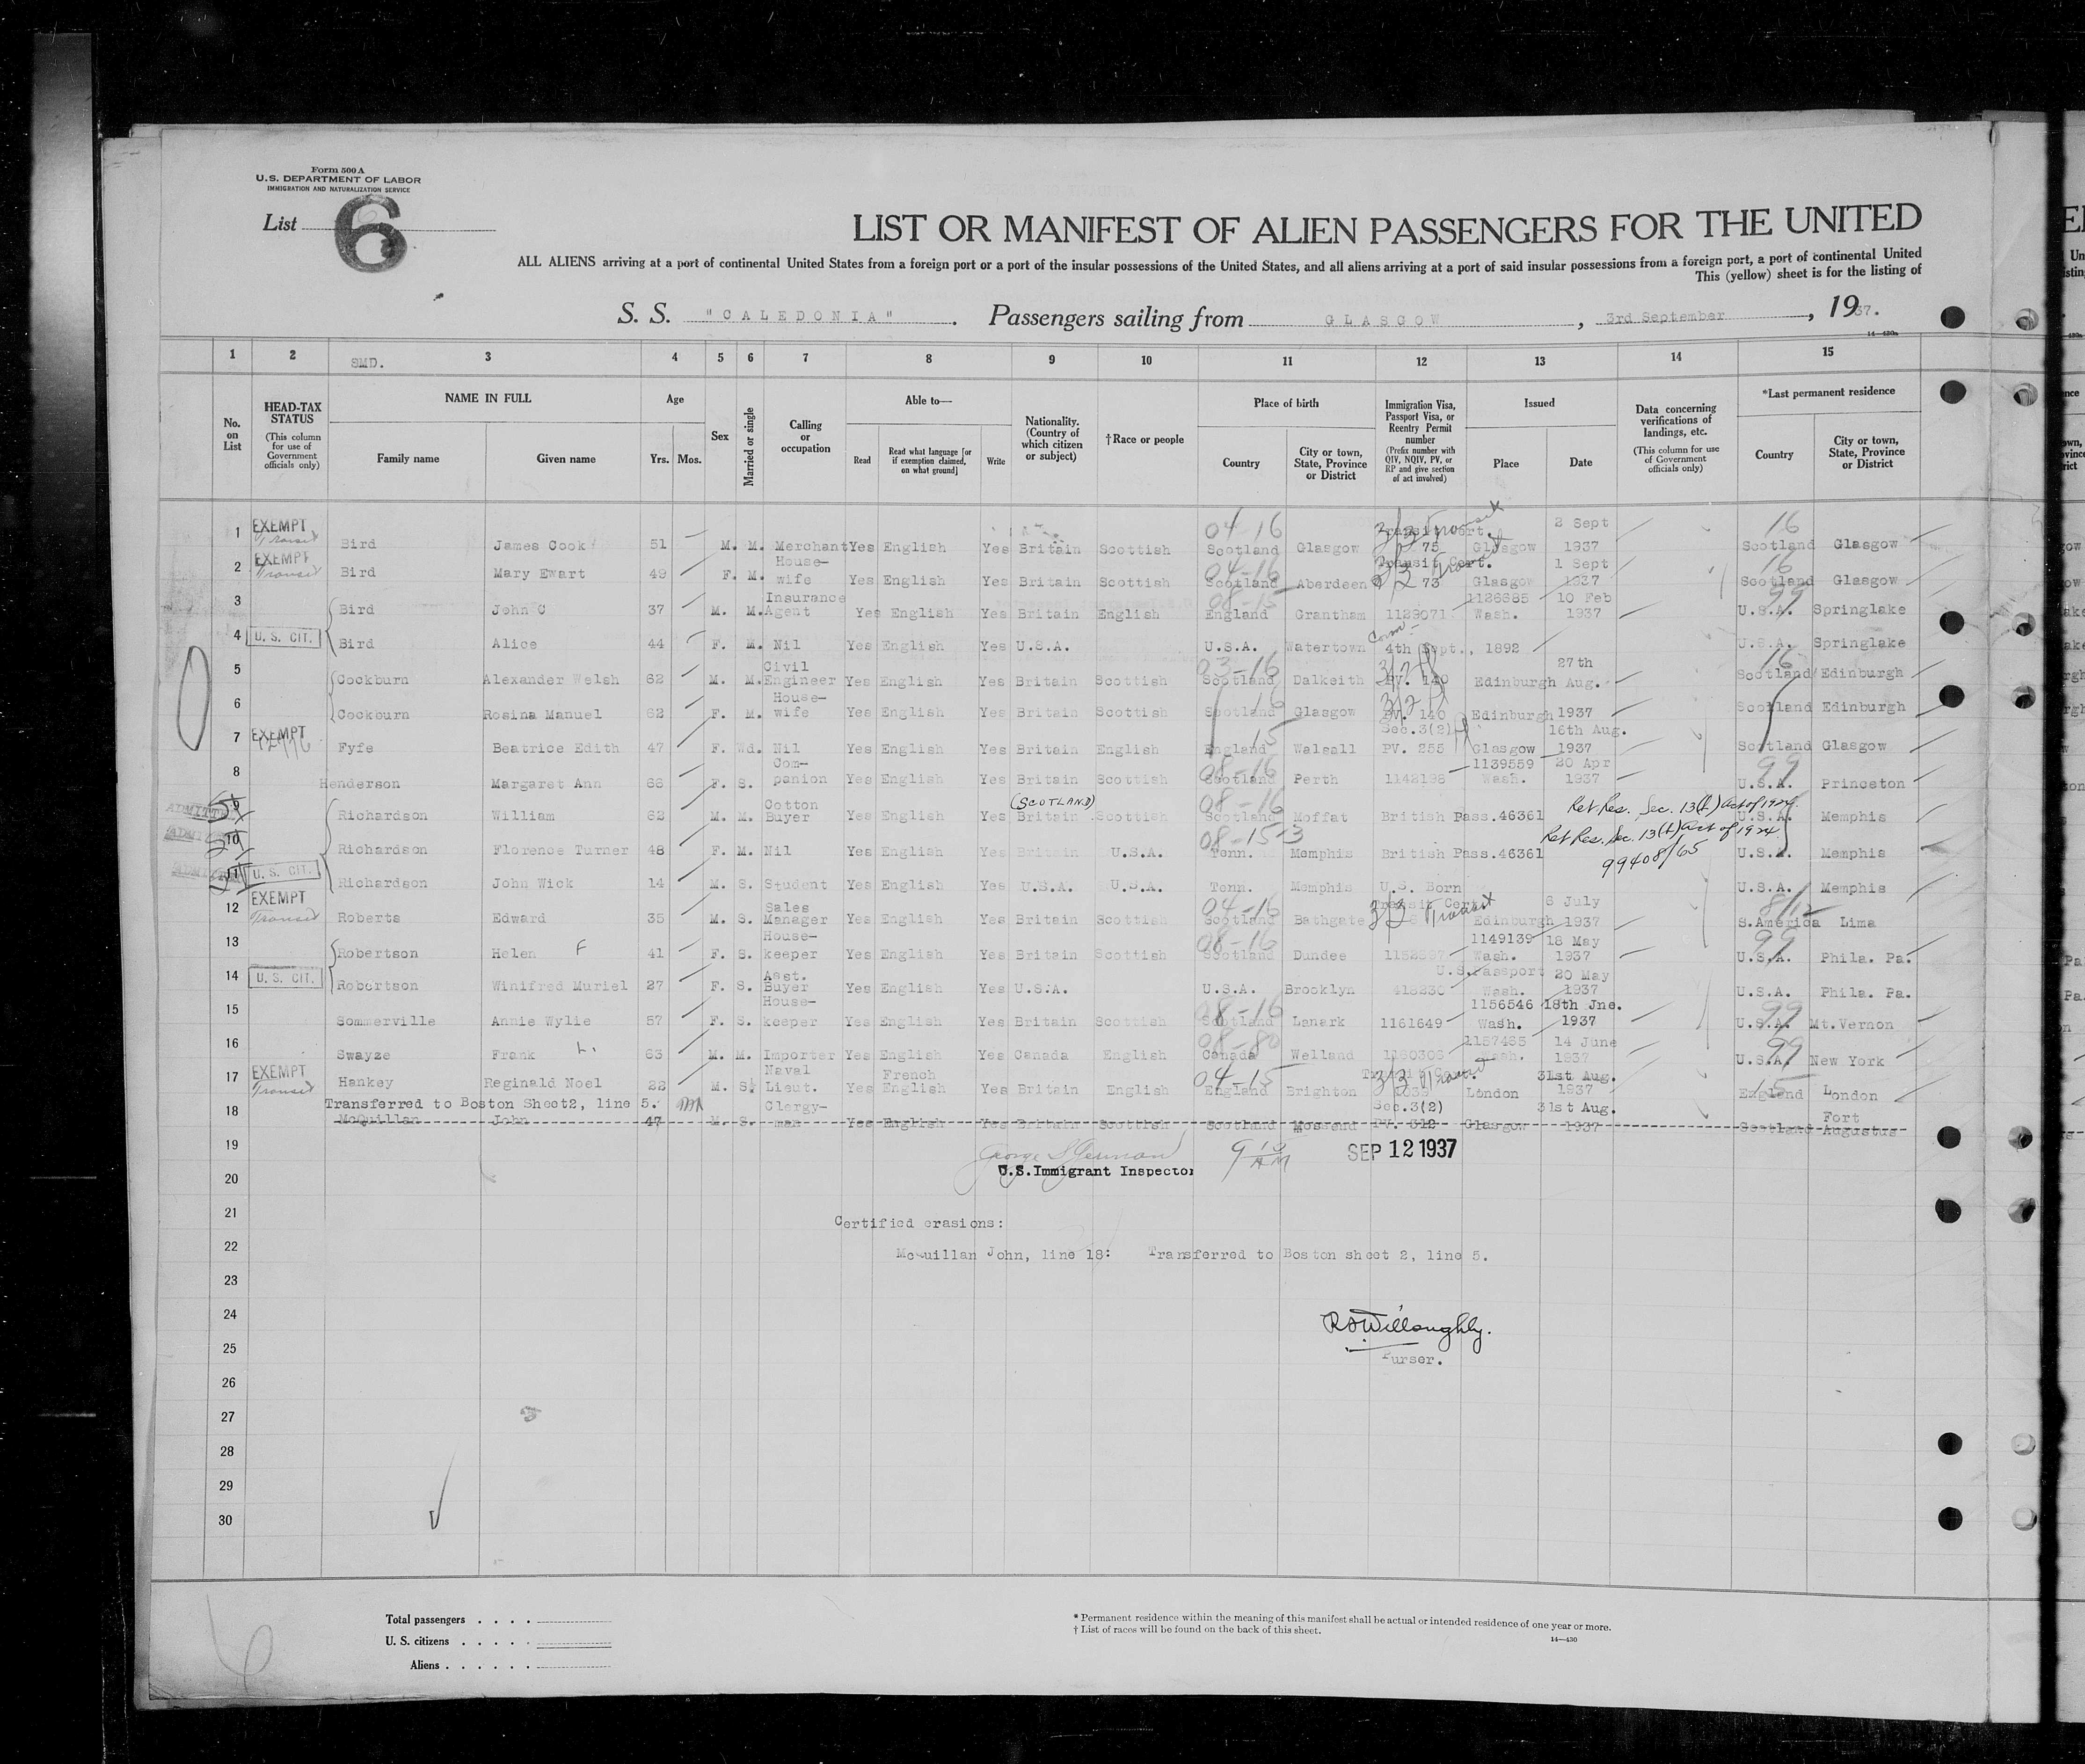 Form 500 A
U.S. DEPARTMENT OF LABOR
IMMIGRATION AND NATURALIZATION SERVICE
List 6
LIST OR MANIFEST OF ALIEN PASSENGERS FOR THE UNITED
ALL ALIENS arriving at a port of continental United States from a foreign port or a port of the insular possessions of the United States, and all aliens arriving at a port of said insular possessions from a foreign port, a port of continental United
This (yellow) sheet is for the listing of
S. S. "CALEDONIA". Passengers sailing from GLASGOW, 3rd September, 1937.
14—430a
1 2 3 4 5 6 7 8 9 10 11 12 13 14 15
SMD.
No. on List
HEAD-TAX STATUS (This column for use of Government officials only)
NAME IN FULL Family name Given name
Age Yrs. Mos.
Sex
Married or single
Calling or occupation
Able to— Read Read what language [or if exemption claimed, on what ground] Write
Nationality. (Country of which citizen or subject)
†Race or people
Place of birth Country City or town, State, Province or District
Immigration Visa, Passport Visa, or Reentry Permit number (Prefix number with QIV, NQIV, PV, or RP and give section of act involved)
Issued Place Date
Data concerning verifications of landings, etc. (This column for use of Government officials only)
*Last permanent residence Country City or town, State, Province or District
1 EXEMPT Transit Bird James Cook 51 M. M. Merchant Yes English Yes Britain Scottish 04-16 Scotland Glasgow Transit Cert. 75 3/3 Transit Glasgow 2 Sept 1937 16 Scotland Glasgow
2 EXEMPT Transit Bird Mary Ewart 49 F. M. House-wife Yes English Yes Britain Scottish 04-16 Scotland Aberdeen Transit Cert. 73 Glasgow 1 Sept 1937 16 Scotland Glasgow
3 Bird John C 37 M. M. Insurance Agent Yes English Yes Britain English 08-15 England Grantham 1129071 1126685 Wash. 10 Feb 1937 99 U.S.A. Springlake
4 U. S. CIT. Bird Alice 44 F. M. Nil Yes English Yes U.S.A. U.S.A. Watertown 4th Sept., 1892 U.S.A. Springlake
5 Cockburn Alexander Welsh 62 M. M. Civil Engineer Yes English Yes Britain Scottish 03-16 Scotland Dalkeith 3/2 PV. 140 Edinburgh 27th Aug. 16 Scotland Edinburgh
6 Cockburn Rosina Manuel 62 F. M. House-wife Yes English Yes Britain Scottish 16 Scotland Glasgow 3/2 PV. 140 Edinburgh 1937 Scotland Edinburgh
7 EXEMPT Fyfe Beatrice Edith 47 F. Wd. Nil Yes English Yes Britain English 15 England Walsall Sec.3(2) PV. 255 Glasgow 16th Aug. 1937 Scotland Glasgow
8 Henderson Margaret Ann 66 F. S. Com-panion Yes English Yes Britain Scottish 08-16 Scotland Perth 1142196 1139559 Wash. 20 Apr 1937 99 U.S.A. Princeton
9 Richardson William 62 M. M. Cotton Buyer Yes English Yes (SCOTLAND) Britain Scottish 08-16 Scotland Moffat British Pass.46361 Ret Res. Sec. 13(b) act of 1924. U.S.A. Memphis
10 Richardson Florence Turner 48 F. M. Nil Yes English Yes Britain U.S.A. 08-15-3 Tenn. Memphis British Pass.46361 Ret Res. Sec. 13(b) act of 1924 99408/65 U.S.A. Memphis
11 U. S. CIT. Richardson John Wick 14 M. S. Student Yes English Yes U.S.A. U.S.A. Tenn. Memphis U.S. Born U.S.A. Memphis
12 EXEMPT Transit Roberts Edward 35 M. S. Sales Manager Yes English Yes Britain Scottish 04-16 Scotland Bathgate Transit Cert. 3/3 Transit Edinburgh 6 July 1937 S.America Lima
13 Robertson Helen F 41 F. S. House-keeper Yes English Yes Britain Scottish 08-16 Scotland Dundee 1149139 Wash. 18 May 1937 99 U.S.A. Phila. Pa.
14 U. S. CIT. Robertson Winifred Muriel 27 F. S. Asst. Buyer Yes English Yes U.S.A. U.S.A. Brooklyn U.S.Passport 418230 Wash. 20 May 1937 U.S.A. Phila. Pa.
15 Sommerville Annie Wylie 57 F. S. House-keeper Yes English Yes Britain Scottish 08-16 Scotland Lanark 1161649 1156546 Wash. 18th Jne. 1937 99 U.S.A. Mt.Vernon
16 Swayze Frank L. 63 M. M. Importer Yes English Yes Canada English 08-80 Canada Welland 1160306 1157485 Wash. 14 June 1937 99 U.S.A. New York
17 EXEMPT Transit Hankey Reginald Noel 22 M. S. Naval Lieut. Yes French English Yes Britain English 04-15 England Brighton 3/3 Transit London 31st Aug. 1937 15 England London
Transferred to Boston Sheet2, line 5.
18 McQuillan John 47 M. S. Clergy-man Yes English Yes Britain Scottish Scotland Mossend Sec.3(2) PV. 312 Glasgow 31st Aug. 1937 Scotland Fort Augustus
19 SEP 12 1937
U.S.Immigrant Inspector 9 10 AM
20
21
Certified erasions:
22 McQuillan John, line 18: Transferred to Boston sheet 2, line 5.
23
24
R Willoughby.
25 Purser.
26
27
28
29
30
Total passengers
U. S. citizens
Aliens
* Permanent residence within the meaning of this manifest shall be actual or intended residence of one year or more.
† List of races will be found on the back of this sheet.
14—430